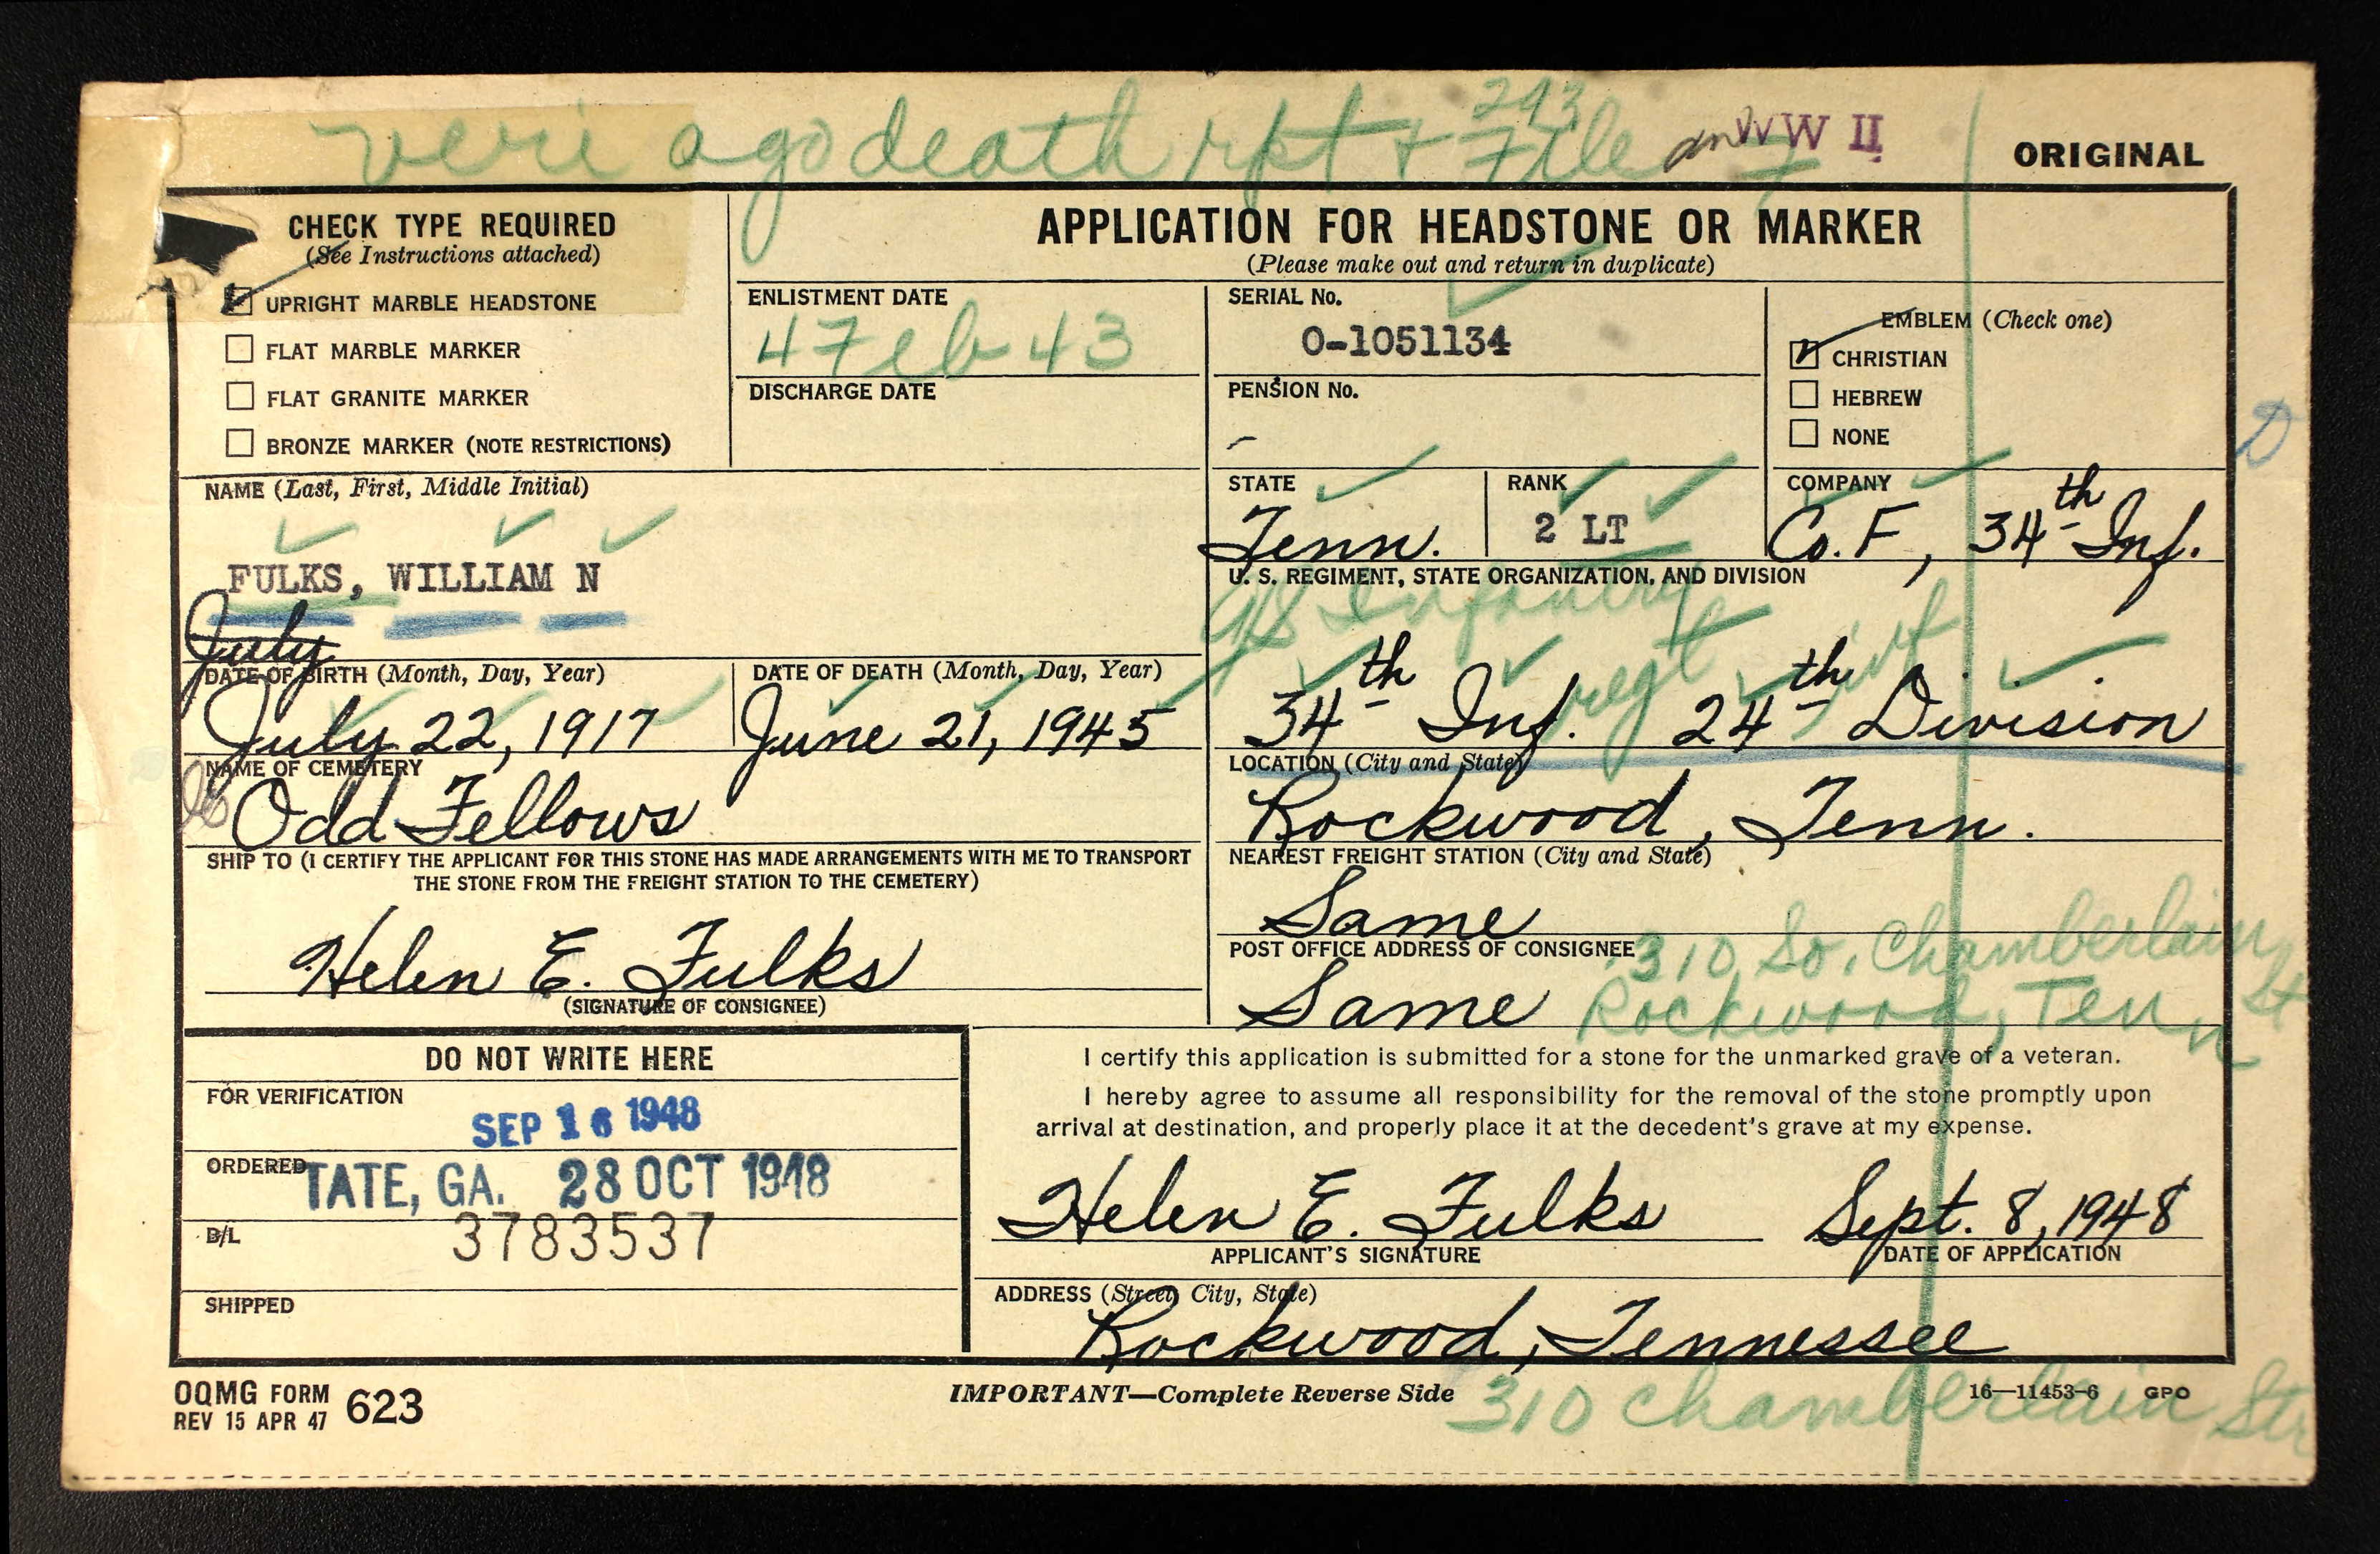 veri ago death rpt + 293 File
WW II
ORIGINAL
CHECK TYPE REQUIRED
(See Instructions attached)
UPRIGHT MARBLE HEADSTONE
FLAT MARBLE MARKER
FLAT GRANITE MARKER
BRONZE MARKER (NOTE RESTRICTIONS)
APPLICATION FOR HEADSTONE OR MARKER
(Please make out and return in duplicate)
ENLISTMENT DATE
4 Feb 43
DISCHARGE DATE
SERIAL No.
O-1051134
PENSION No.
-
EMBLEM (Check one)
CHRISTIAN
HEBREW
NONE
D
NAME (Last, First, Middle Initial)
FULKS, WILLIAM N
STATE
Tenn.
RANK
2 LT
COMPANY
Co. F, 34th Inf.
U. S. REGIMENT, STATE ORGANIZATION, AND DIVISION
Infantry
34th Inf. regt 24th inf Division
July
DATE OF BIRTH (Month, Day, Year)
July 22, 1917
DATE OF DEATH (Month, Day, Year)
June 21, 1945
NAME OF CEMETERY
Odd Fellows
LOCATION (City and State)
Rockwood, Tenn.
SHIP TO (I CERTIFY THE APPLICANT FOR THIS STONE HAS MADE ARRANGEMENTS WITH ME TO TRANSPORT
THE STONE FROM THE FREIGHT STATION TO THE CEMETERY)
Helen E. Fulks
(SIGNATURE OF CONSIGNEE)
NEAREST FREIGHT STATION (City and State)
Same
POST OFFICE ADDRESS OF CONSIGNEE
310 So. Chamberlain St
Same Rockwood, Tenn
DO NOT WRITE HERE
FOR VERIFICATION
SEP 16 1948
ORDERED
TATE, GA. 28 OCT 1948
B/L
3783537
SHIPPED
I certify this application is submitted for a stone for the unmarked grave of a veteran.
I hereby agree to assume all responsibility for the removal of the stone promptly upon
arrival at destination, and properly place it at the decedent's grave at my expense.
Helen E. Fulks Sept. 8, 1948
APPLICANT'S SIGNATURE DATE OF APPLICATION
ADDRESS (Street, City, State)
Rockwood, Tennessee
OQMG FORM 623
REV 15 APR 47
IMPORTANT—Complete Reverse Side
16—11453-6 GPO
310 Chamberlain Str